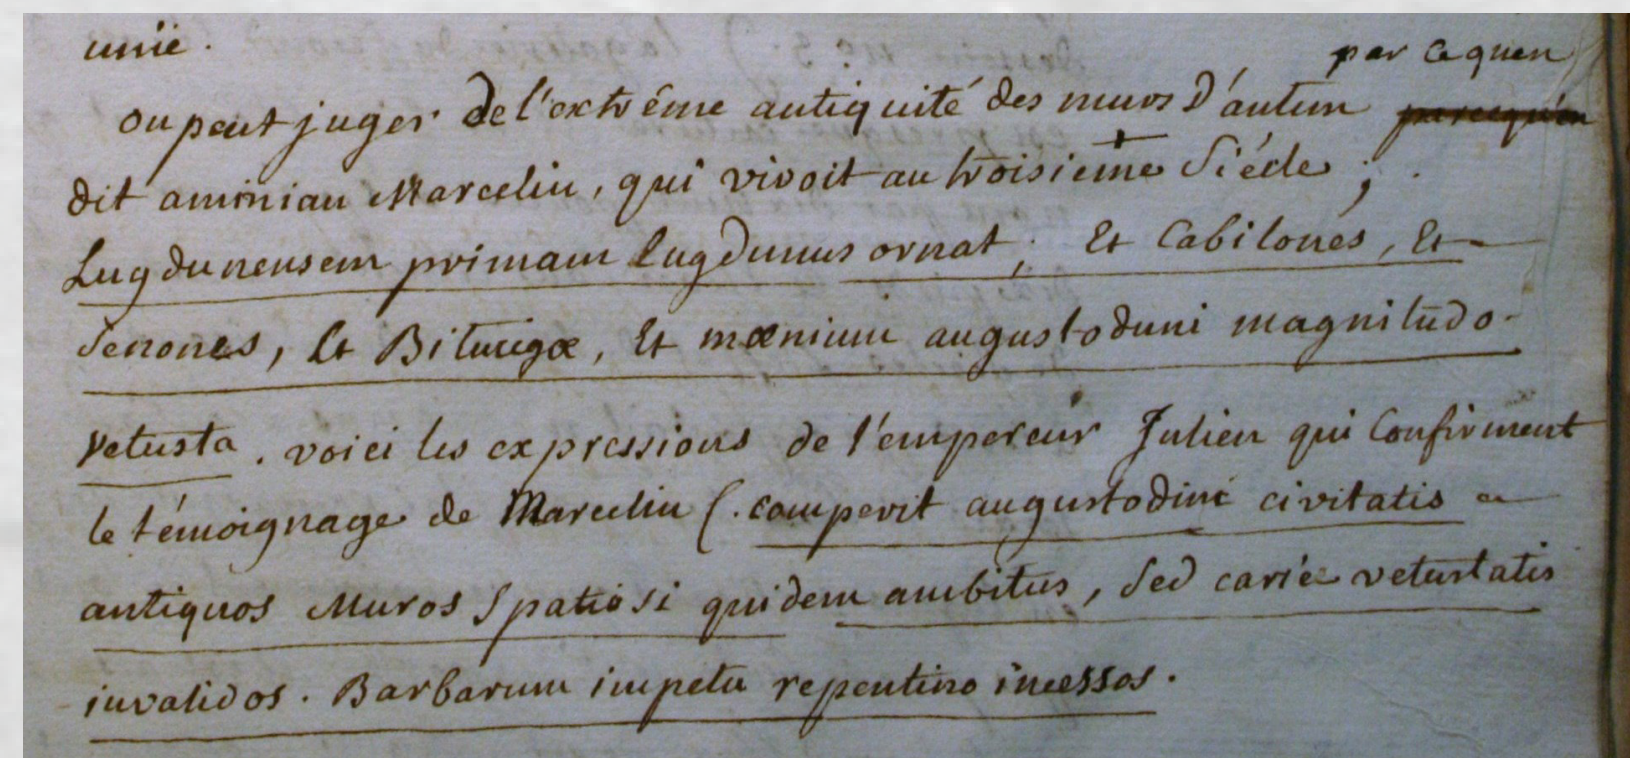 unie.
par ce quen
on peut juger de l'extrême antiquité des murs D'autun
dit aminian Marcelin, qui vivoit au troisieme Siécle ;
Lugdunensem primam lugdunus ornat, Et Cabilonés, Et
Senones, Et Biturigæ, Et mœnium augustoduni magnitudo
vetusta. voici les expressions de l'empereur Julien qui Confirment
le témoignage de Marcelin (. comperit augustoduni civitatis
antiquos Muros Spatiosi quidem ambitus, Sed carie vetustatis
invalidos. Barbarum impetu repentino incessos.